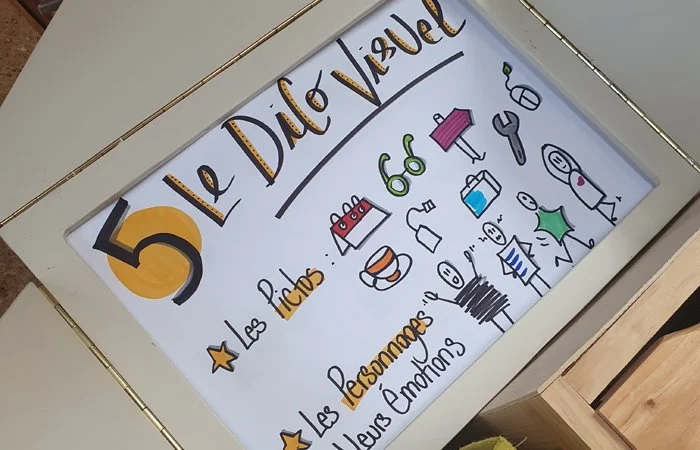 5 Le Dico Visuel
Les Pictos :
Les Personnages
leurs émotions